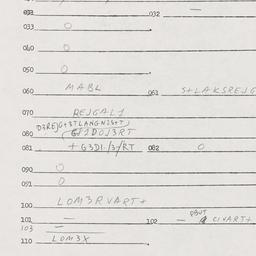 032 —
033 0
040 0
050 0
060 MABL 061 S+LAKSREJG
070 REJGAL1
D3REJG+3TLANGN3S+TJ
080 GJ1D0J3RT
081 +G3D1/3/RT 082 0
090 0
091 0
100 LOM3RVART+
101 — 102 — CIVART+
103 —
110 LOM3X